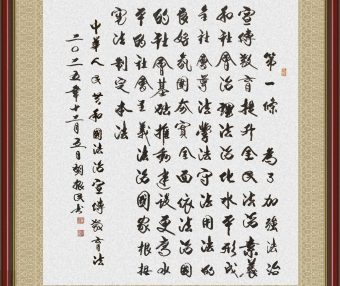 第一條 為了加強法治
宣傳教育提升全民法治素養
和社會治理法治化水平形成
全社會尊法學法守法用法的
良好氛圍夯實全面依法治國
的社會基礎推動建設更高水
平的社會主義法治國家根据
憲法制定本法
中華人民共和國法治宣傳教育法
二〇二五年十二月五日胡振民书